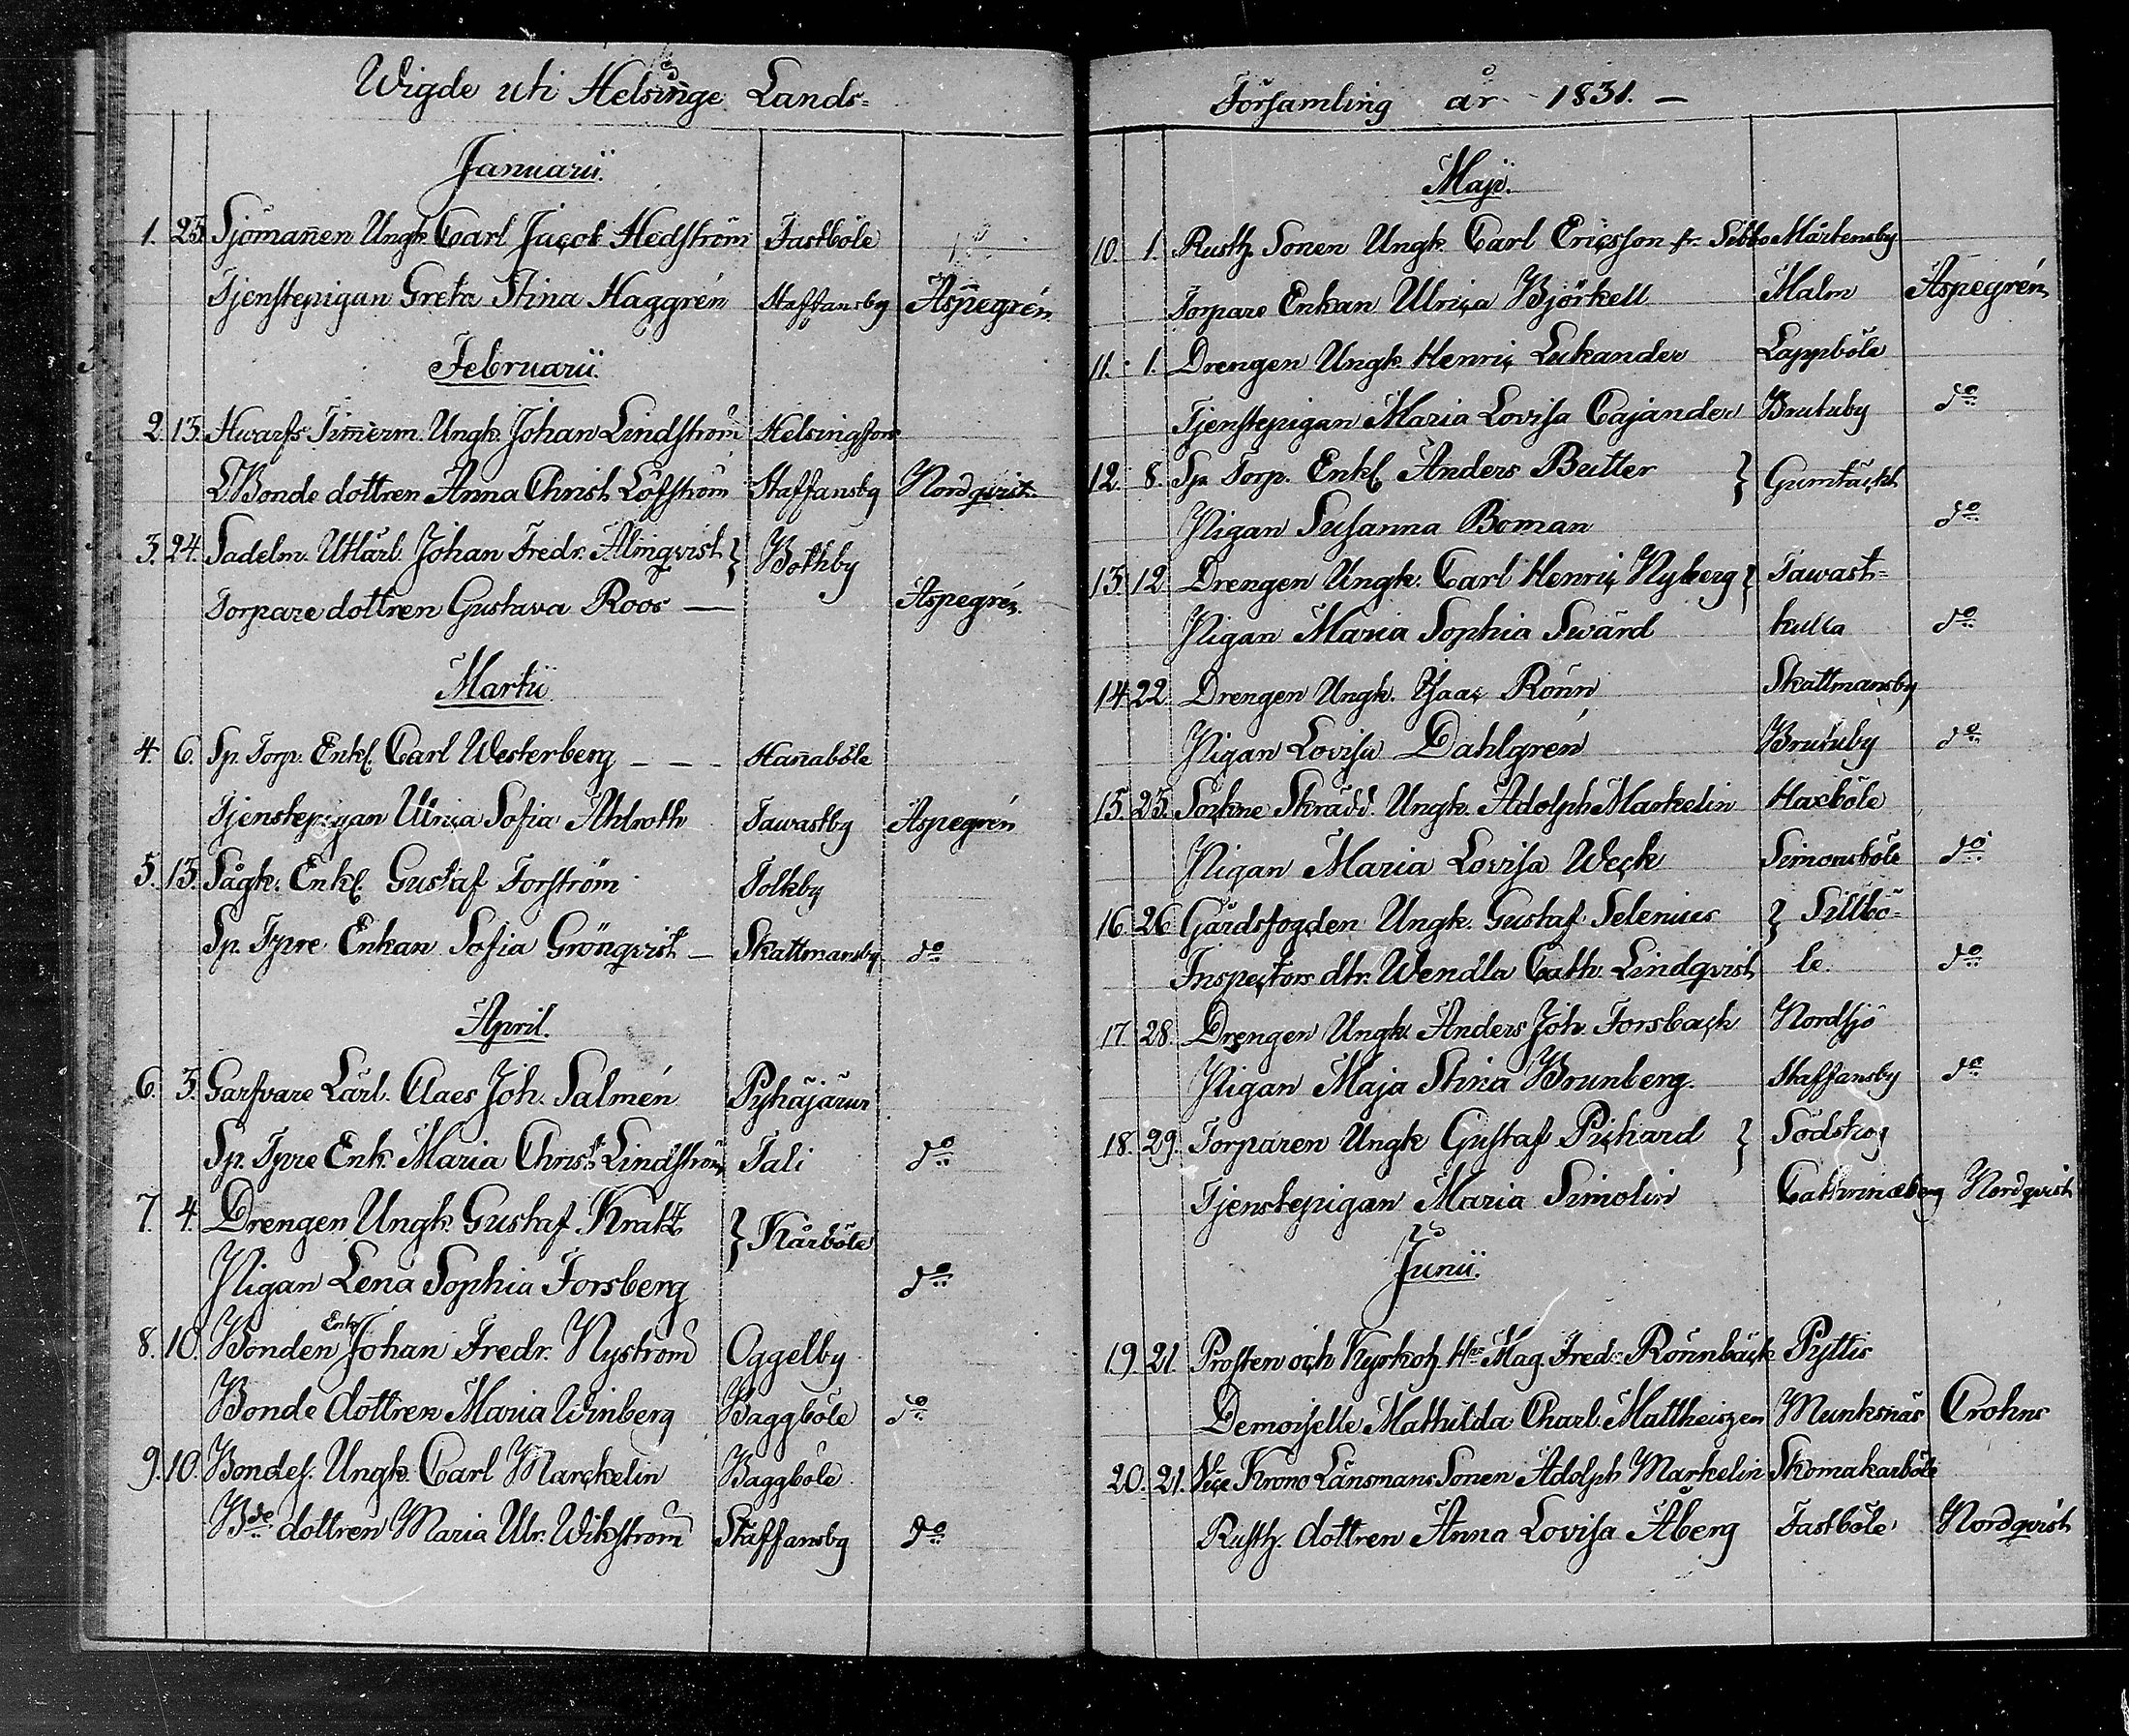 Wigde uti Helsinge Lands=
Januarii.
1. 23. Sjömannen Ungk. Carl Jacob Hedström Fastböle
Tjenstepigan Greta Stina Haggrén Staffansby Aspegrén
Februarii.
2. 13. Hwarfs Timmerm. Ungk. Johan Lindström Helsingfors
LBonde dottren Anna Christ. Löfström Staffansby Nordqvist
3. 24. Sadelm. Utlärl. Johan Fredr. Almqvist } Bothby
Torpare dottren Gustava Roos — Aspegrén
Martii
4. 6. Sp. Torp. Enkl. Carl Westerberg - - - Hannaböle
Tjenstepigan Ulrica Sofia Ahlroth Tawastby Aspegrén
5. 13. Sågk. Enkl. Gustaf Forström Tolkby
Sp. Tpre Enkan Sofia Grönqvist - Skattmansby do
April.
6. 3. Garfvare Lärl. Claes Joh. Salmén Pyhäjärvi
Sp. Tpre Enk. Maria Christ. Lindström Tali do
7. 4. Drengen Ungk. Gustaf Kratt } Kårböle
Pigan Lena Sophia Forsberg do
8. 10. Bonden Enkl. Johan Fredr. Nyström Oggelby
Bonde dottren Maria Winberg Baggböle do
9. 10. Bondes. Ungk. Carl Marckelin Baggböle
Bde dottren Maria Ulr. Wikström Staffansby do
Församling år 1831. —
Maji.
10. 1. Rusth. Sonen Ungk. Carl Ericsson fr. Sibbo Mårtensby
Torpare Enkan Ulrica Björkell Malm Aspegrén
11. 1. Drengen Ungk. Henric Lukander Lappböle
Tjenstepigan Maria Lovisa Cajander Brutuby do
12. 8. Sp. Torp. Enkl. Anders Butter } Gumtäckt
Pigan Susanna Boman do
13. 12. Drengen Ungk. Carl Henric Nyberg } Tawast=
Pigan Maria Sophia Swärd kulla do
14. 22. Drengen Ungk. Isaac Rönn Skattmansby
Pigan Lovisa Dahlgrén Brutuby do
15. 23. Sockne Skrädd. Ungk. Adolph Markelin Haxböle
Pigan Maria Lovisa Weck Simonsböle do
16. 26. Gårdsfogden Ungk. Gustaf Selenius } Sillbö=
Inspectors dtr. Wendla Cath. Lindqvist le. do
17. 28. Drengen Ungk. Anders Joh. Forsback Nordsjö
Pigan Maja Stina Brunberg. Staffansby do
18. 29. Torparen Ungk Gustaf Pichard } Sodskog
Tjenstepigan Maria Simolin Cathrineberg Nordqvist
Junii.
19. 21. Prosten och Kyrkoh. Her Mag. Fred. Rönnbäck Pyttis
Demoiselle Mathilda Charl. Mattheiszen Munksnäs Crohns
20. 21. Vice Krono Länsmans Sonen Adolph Markelin Skomakarböle
Rusth. dottren Anna Lovisa Åberg Fastböle Nordqvist